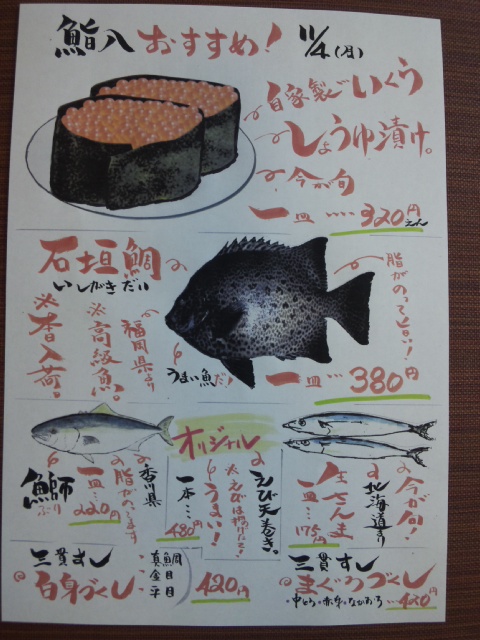 鮨八おすすめ! 11/4(月)
自家製いくら
しょうゆ漬け。
今が旬
一皿····320円
石垣鯛
いしがきだい
福岡県より
※高級魚。
※本日入荷。
うまい魚だ♪
脂がのって旨い!
一皿…380円
オリジナル
鰤
ぶり
香川県
脂がのってます
一皿…220円
えび天巻き。
※えびは揚げたて!
うまい!
一本…480円
今が旬!
北海道より
生さんま
一皿…175円
三貫すし
白身づくし
真鯛
金目
平目
420円
三貫すし
まぐろづくし
・中とろ・赤身・なかおち…420円